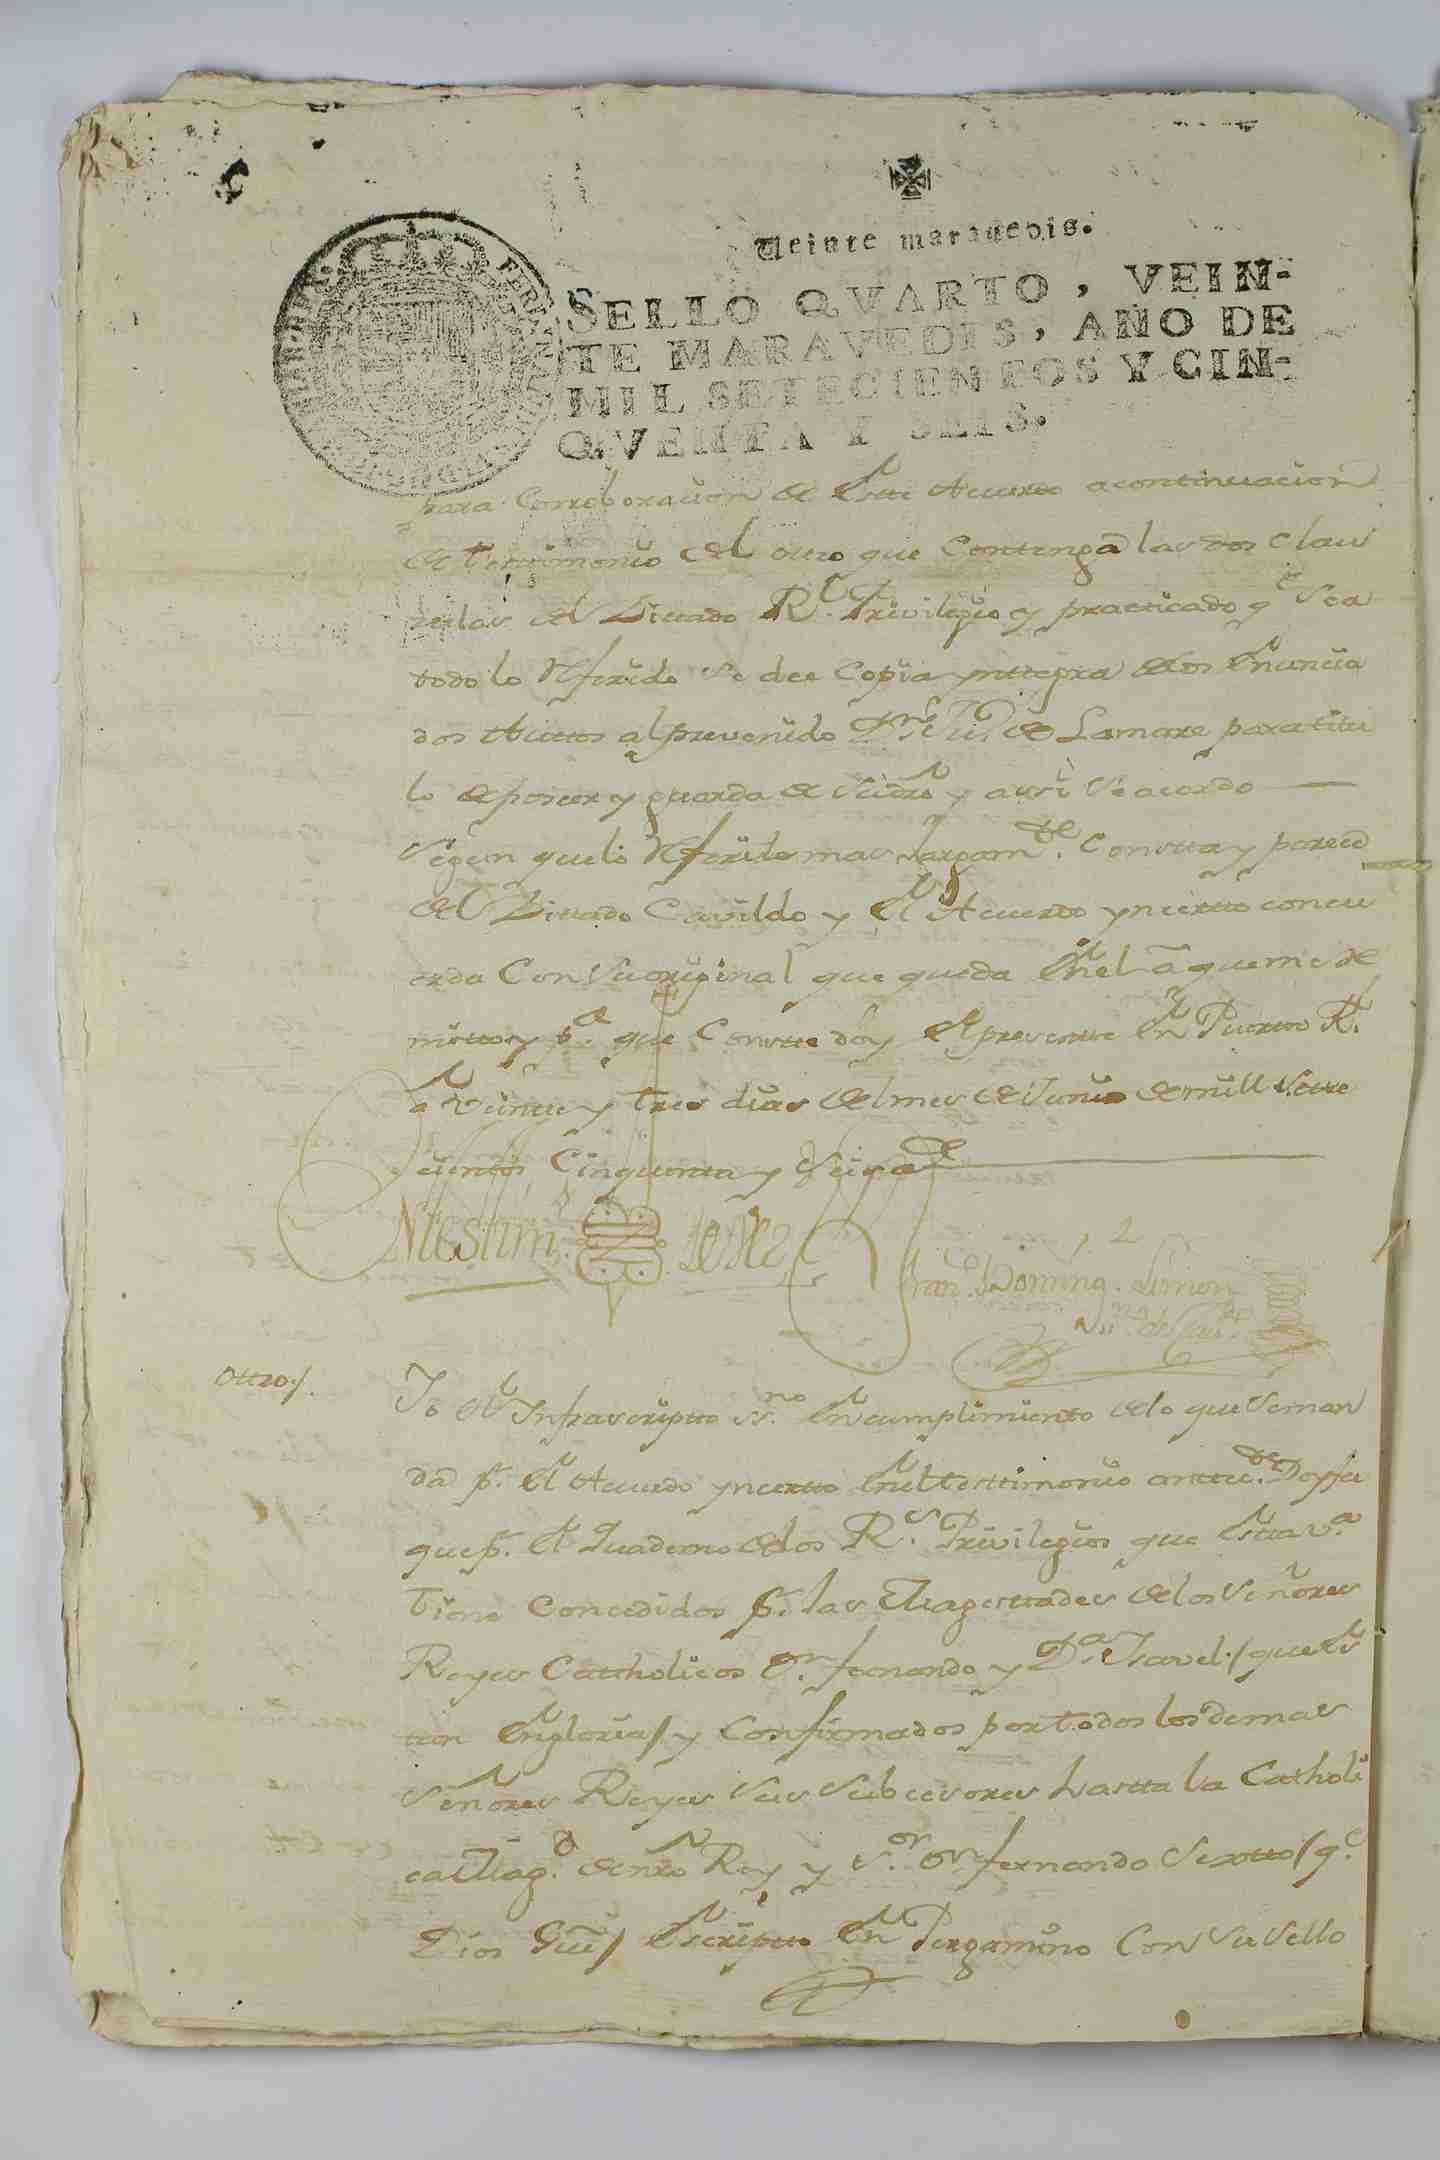 Veinte maravedis.
SELLO QVARTO, VEIN-
TE MARAVEDIS, AÑO DE
MIL SETECIENTOS Y CIN-
QVENTA Y SEIS.
para Corroboracion de Este Acuerdo acontinuacion
de testimonio del ottro que Contenga las dos Clau
sulas del Zittado Rl. Privilegio y practicado qe. sea
todo lo Referido se dee Copia ynttegra de los Enuncia
dos Auttos al prevenido Dn. de Lamare para titu
lo de poseer y guarda de su dro y assi se acordo
Segun que lo Referido mas largamte. Constta y parece
del Zittado Cavildo y el Acuerdo yncertto concu
erda Con su original que queda En el a que me Re
mitto y pa. que Constte doy el presentte En Puertto Rl.
a veinte y tres dias del mes de Junio de mill sette
cientos Cinquenta y Seis
Franco. Doming. Simon
Ottro/.
Yo el Infrascriptto ssno. En cumplimiento de lo que se man
da pr. el Acuerdo yncertto En el testtimonio antteze. Doy fee
que pr. el Quaderno de los Rs. Privilegios que Estta va.
tiene Concedidos pr. las Magesttades de los Señores
Reyes Cattholicos Dn. fernando y Da. Isavel /que es
tten En gloria/ y Confirmados por todos los demas
Señores Reyes sus subcesores hastta la Catholi
ca Magd. de nro Rey y sor. Dn. fernando Sextto /qe.
Dios Gue/ Escriptto En Pergamino Con su sello